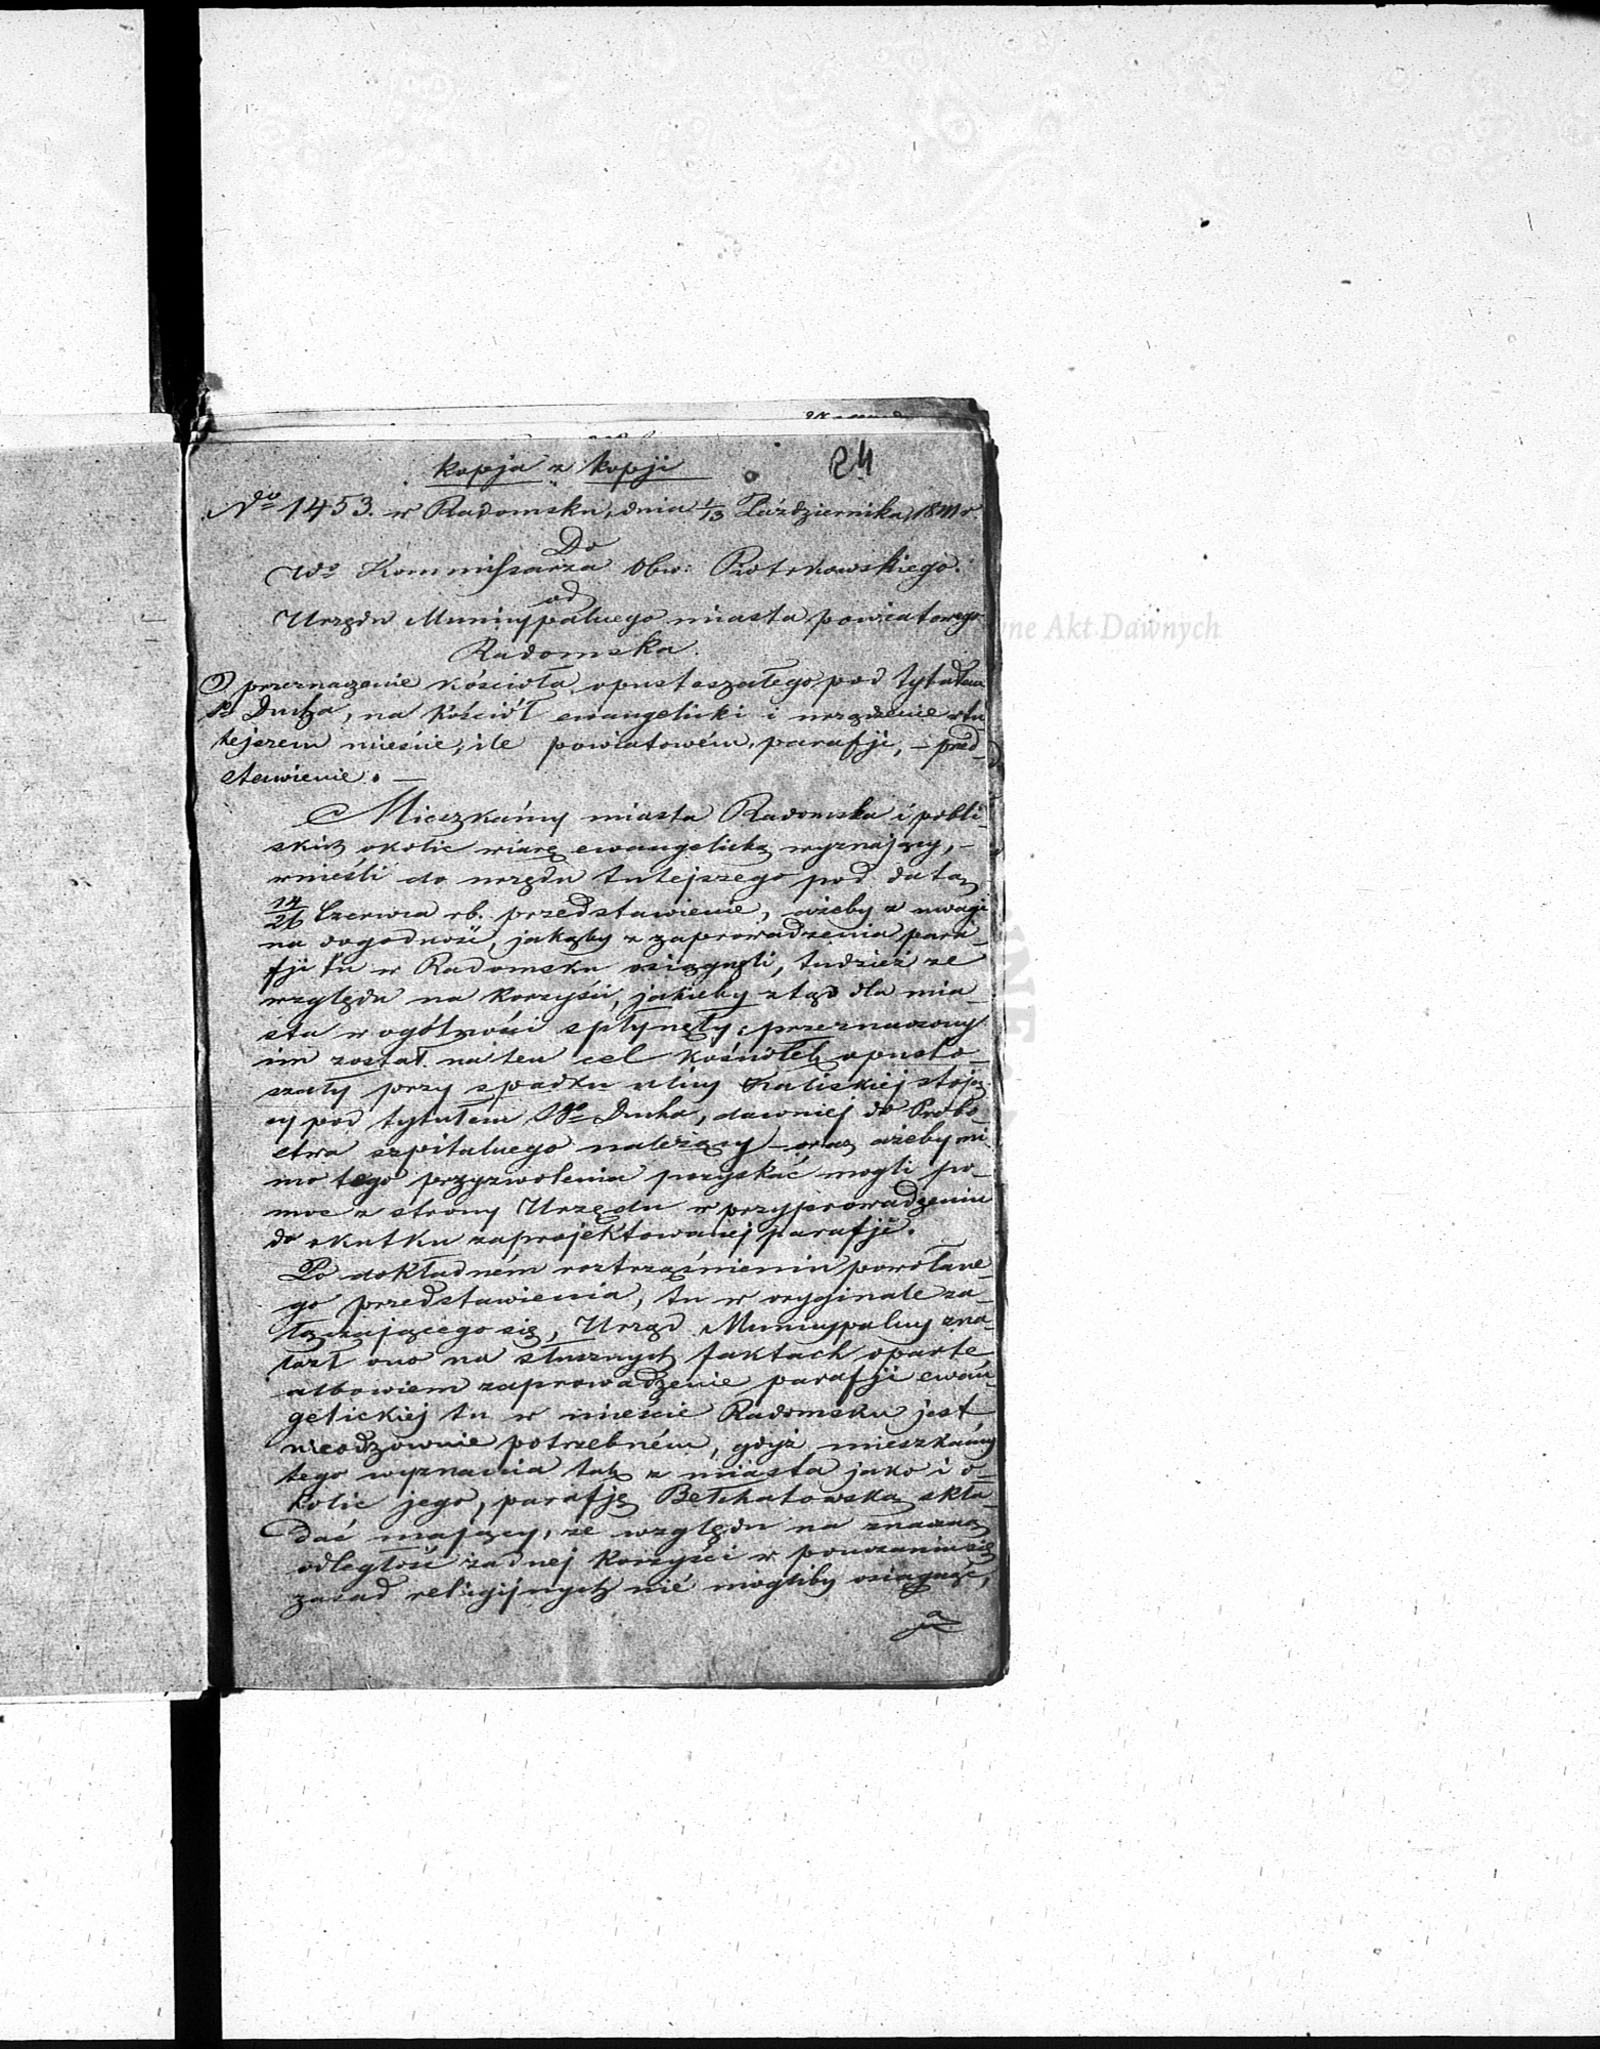 24
kopja z kopji
No 1453. w Radomsku, dnia 1/13 Października
Do
Wo Kommissarza Obw: Piotrkowskiego.
od
Urzędu Municypalnego miasta powiatowego
Radomska.
O przeznaczenie kościoła opustoszałego pod tytułem
Sgo Ducha, na kościół ewangelicki i urządzenie w tu
tejszem mieście, ile powiatowém, parafji, – przed
stawienie. –
Mieszkańcy miasta Radomska i pobli
skich okolic wiarę ewangelicką wyznający, –
wnieśli do urzędu tutejszego pod datą
14/26 Czerwca rb. przedstawienie, ażeby z uwagi
na dogodność, jakąby z zaprowadzenia para
fji tu w Radomsku osiągnęli, tudzież ze
względu na korzyści, jakieby ztąd dla mia
sta w ogólności spłynęły, przeznaczony
im został na ten cel kościółek opusto
szały przy spadku ulicy Kaliskiej stoją
cy pod tytułem Sgo Ducha, dawniej do Probo
stwa szpitalnego należący – oraz ażeby mi
mo tego przyzwolenia pozyskać mogli po
moc z strony Urzędu w przyprowadzeniu
do skutku zaprojektowanej parafji.
Po dokładném roztrząśnieniu powołane
go przedstawienia, tu w oryginale za
łączającego się, Urząd Municypalny zna
lazł ono na słusznych faktach oparte
albowiem zaprowadzenie parafji ewan
gelickiej tu w mieście Radomsku jest
nieodzownie potrzebném, gdyż mieszkańcy
tego wyznania tak z miasta jako i o
kolic jego, parafję Bełchatowską skła
dać mający, ze względu na znaczną
odległość żadnej korzyści w pouczaniu się
zasad religijnych nie mogliby osiągnąć,
ne Akt Dawnych